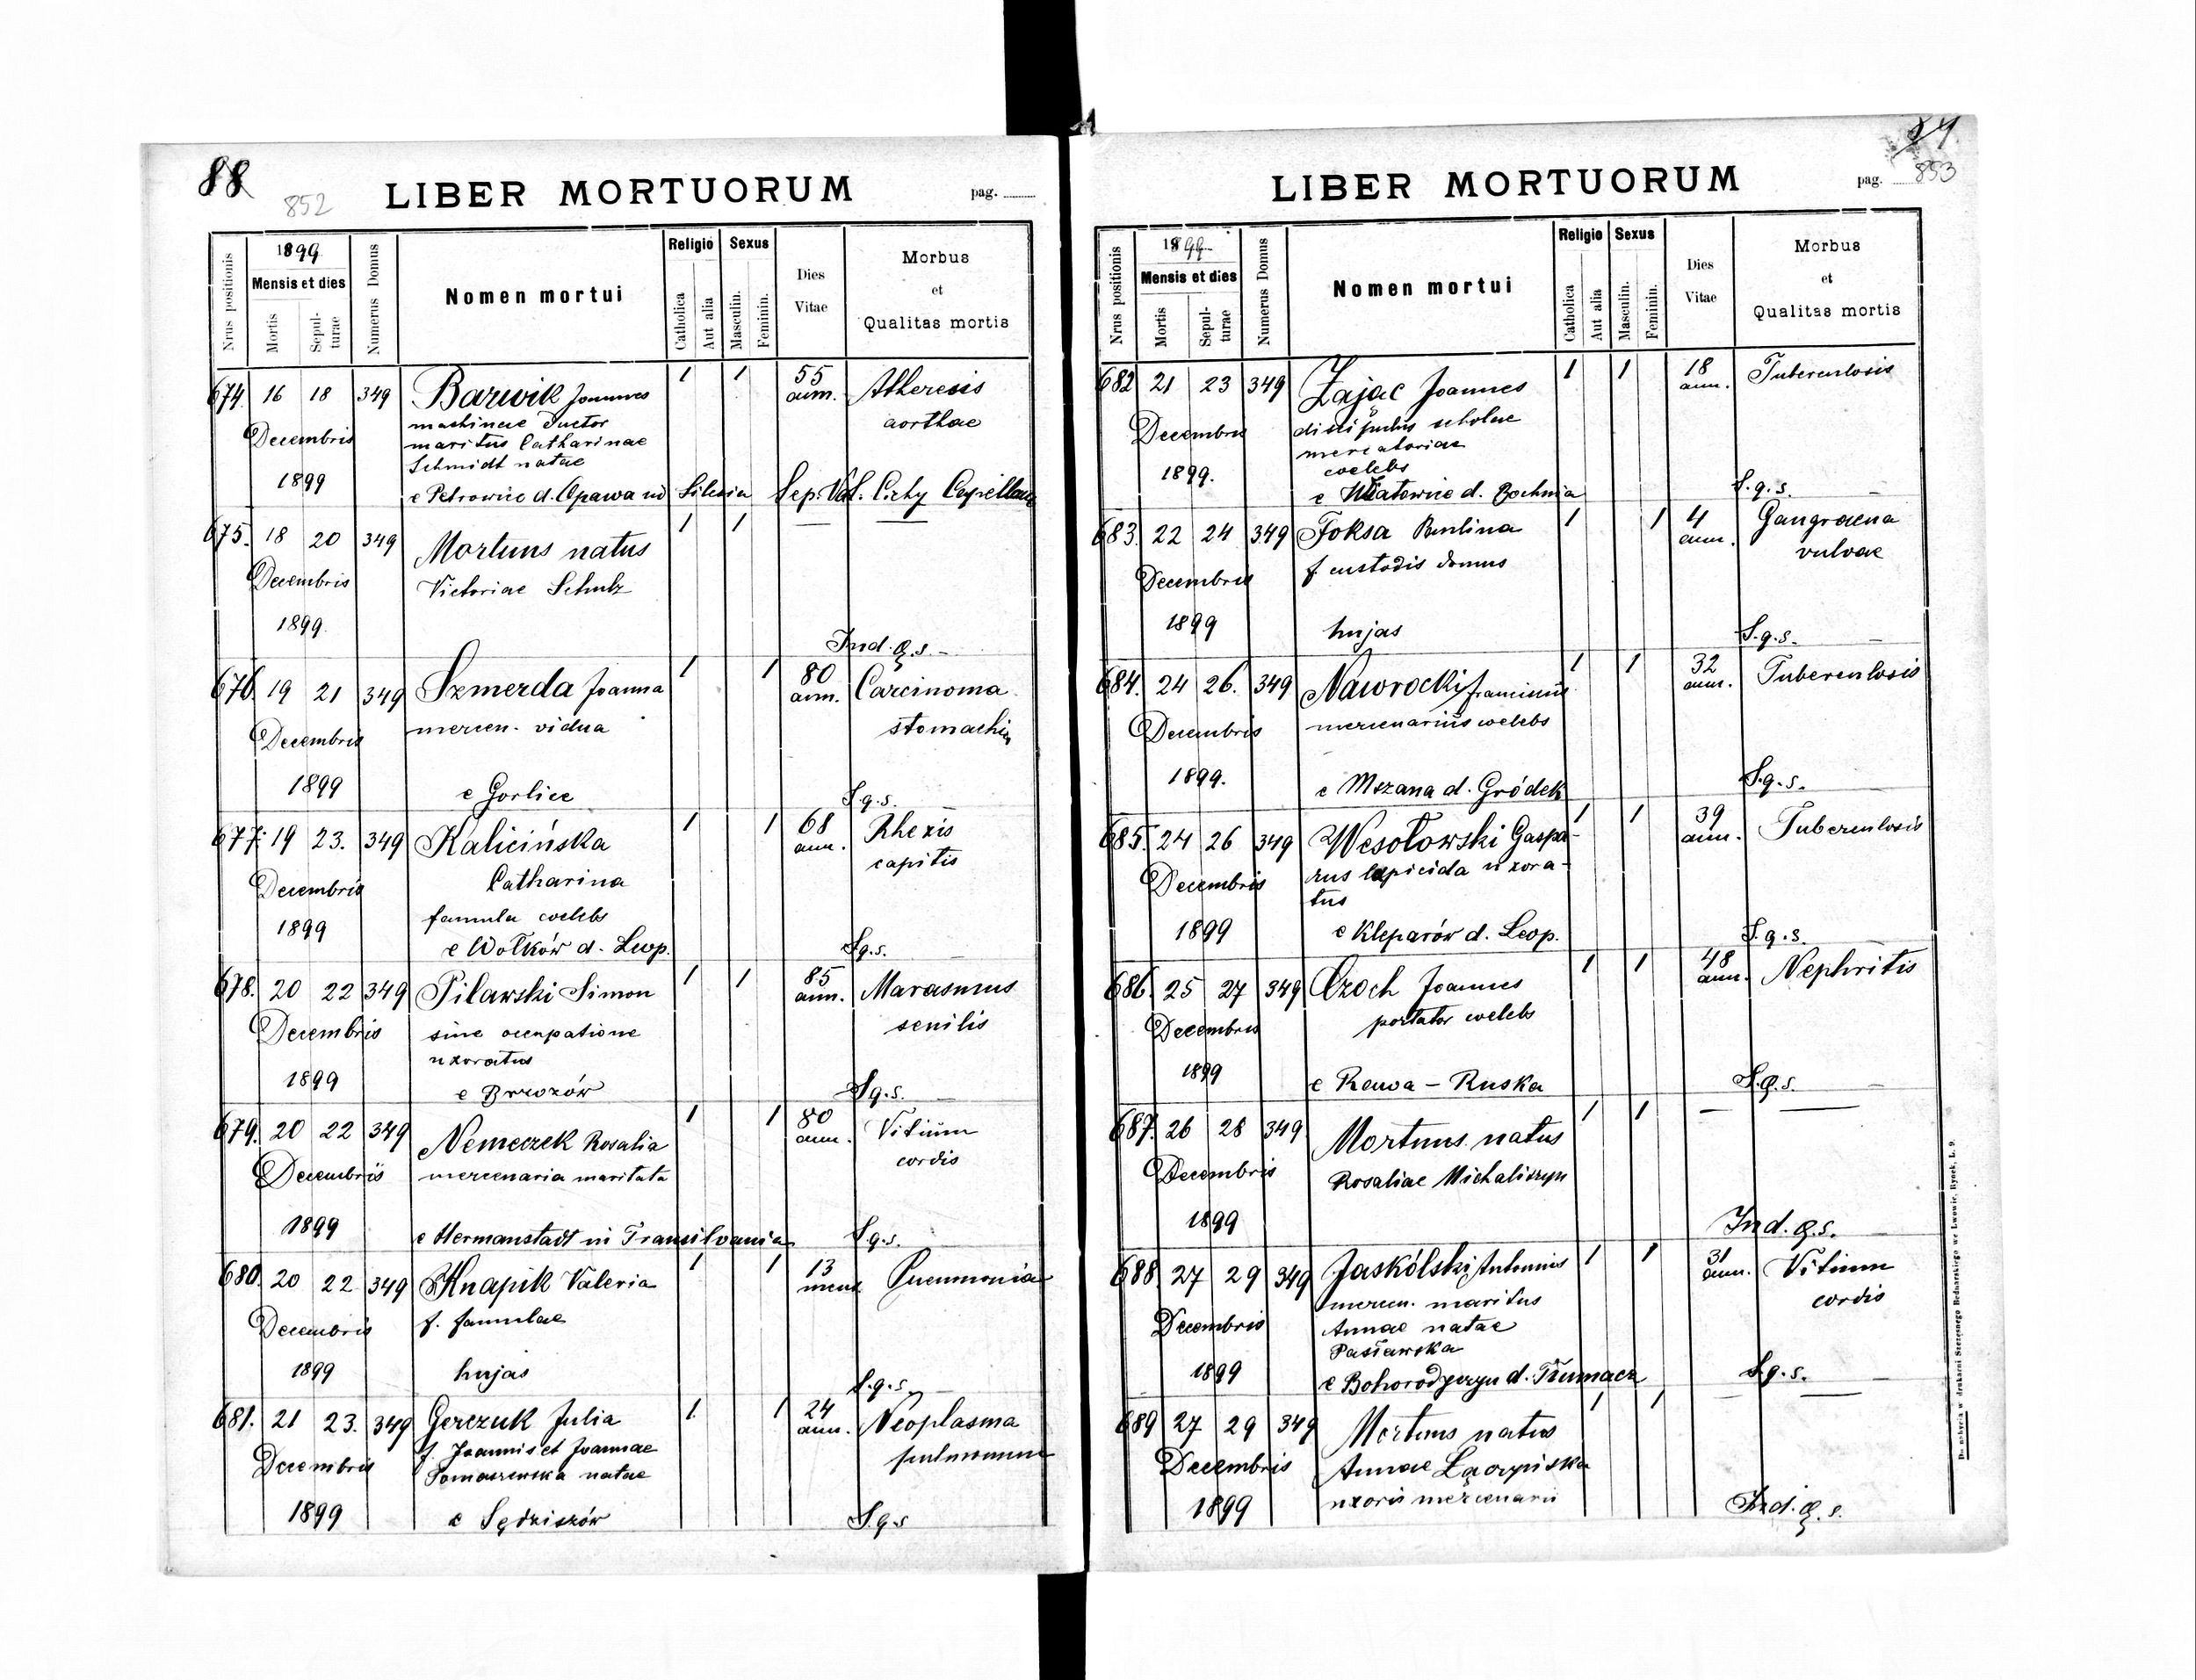 88
852
LIBER MORTUORUM
pag.
Nrus positionis
1899
Mensis et dies
Mortis
Sepul-
turae
Numerus Domus
Nomen mortui
Religio
Catholica
Aut alia
Sexus
Masculin.
Feminin.
Dies
Vitae
Morbus
et
Qualitas mortis
674. 16 18 349 Barwik Joannes 1 1 55 ann.
machinae ductor
Decembris
maritus Catharinae
Schmidt natae
aorthae
1899
e Petrowice d. Opawa in Silesia Sep. Val. Cichy
675. 18 20 349 Mortuus natus 1 1 — —
Decembris
Victoriae Schulz
1899.
Ind. q. s. –
676. 19 21 349 Szmerda Joanna 1 1 80 ann. Carcinoma
Decembris
mercen. vidua
stomachi
1899
e Gorlice
S. q. s.
677. 19 23. 349 Kalicińska 1 1 68 ann. Rhexis
Decembris
Catharina
capitis
famula coelebs
1899
e Wołków d. Leop.
S. q. s.
678. 20 22 349 Pilawski Simon 1 1 85 ann. Marasmus
Decembris
sine occupatione
senilis
uxoratus
1899
e Brzozów
S. q. s.
679. 20 22 349 Nemeczek Rosalia 1 1 80 ann. Vitium
Decembris
mercenaria maritata
cordis
1899
e Hermanstadt in Transilvania
S. q. s.
680. 20 22 349 Knapik Valeria 1 1 13 mens. Pneumonia
Decembris
f. famulae
1899
hujas
S. q. s.
681. 21 23. 349 Gerczuk Julia 1 1 24 ann. Neoplasma
f. Joannis et Joannae
Decembris
Tomaszewska natae
pulmonum
1899
e Sędziszów
S. q. s
853
LIBER MORTUORUM
pag.
Nrus positionis
1899
Mensis et dies
Mortis
Sepul-
turae
Numerus Domus
Nomen mortui
Religio
Catholica
Aut alia
Sexus
Masculin.
Feminin.
Dies
Vitae
Morbus
et
Qualitas mortis
682 21 23 349 Zając Joannes 1 1 18 ann. Tuberculosis
Decembris
discipulus scholae
mercatoriae
1899.
coelebs
d. Bochnia
S. q. s.
683. 22 24 349 Foksa Paulina 1 1 4 ann. Gangraena
Decembris
f. custodis domus
vulvae
1899
hujas
S. q. s.
684. 24 26. 349 Nawrocki Franciscus 1 1 32 ann. Tuberculosis
Decembris
mercenarius coelebs
1899.
e Mszana d. Gródek
S. q. s.
685. 24 26 349 Wesołowski Gaspa- 1 1 39 ann. Tuberculosis
Decembris
rus lapicida uxora-
tus
1899
e Kleparów d. Leop.
S. q. s.
686. 25 27 349 Czoch Joannes 1 1 48 ann. Nephritis
Decembris
portator coelebs
1899
e Rawa – Ruska
S. q. s.
687. 26 28 349 Mortuus natus 1 1 — —
Decembris
Rosaliae Michaliszyn
1899
Ind. q. s.
688. 27 29 349 Jaskólski Antonius 1 1 31 ann. Vitium
mercen. maritus
cordis
Decembris
Annae natae
Pasławska
1899
e Bohorodyczyn d. Tłumacz
S. q. s.
689 27 29 349 Mortuus natus 1 1 — —
Decembris
Annae
1899
uxoris mercenarii
Ind. q. s.
Do nabycia w drukarni Szczęsnego Bednarskiego we Lwowie, Rynek, L. 9.